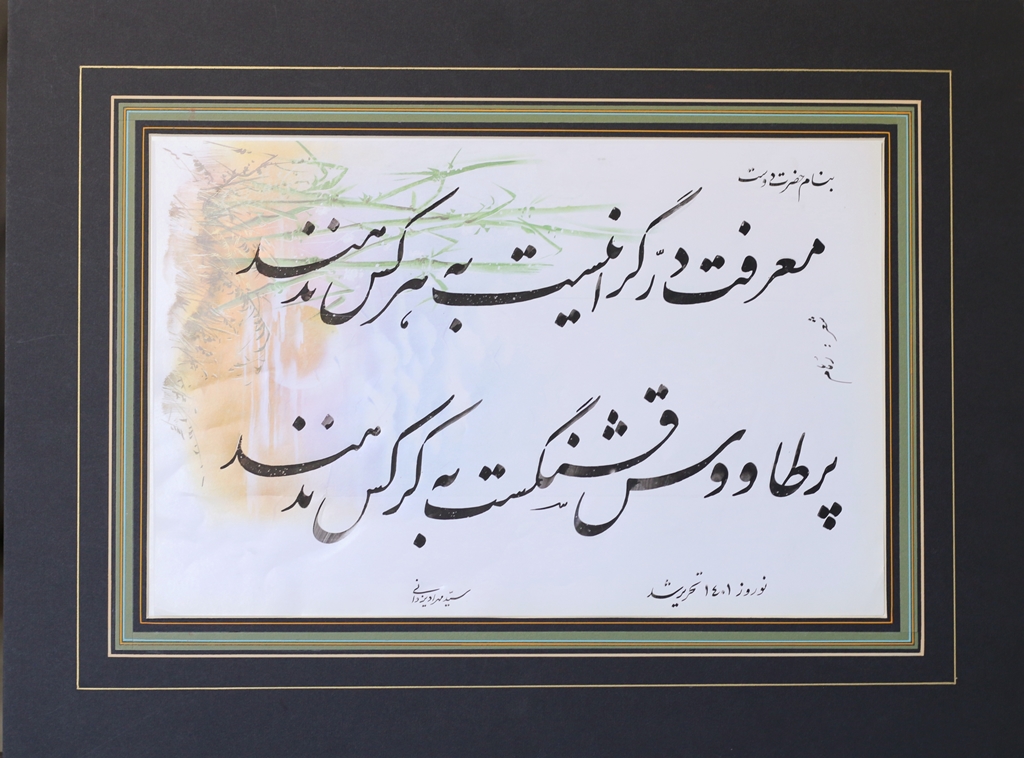 بنام حضرت دوست
معرفت درّ گرانیست به هر کس ندهند
شعر :
پر طاووس قشنگست به کرکس ندهند
نوروز ۱٤۰۱ تحریر شد
سیّد مهراد یزدانی